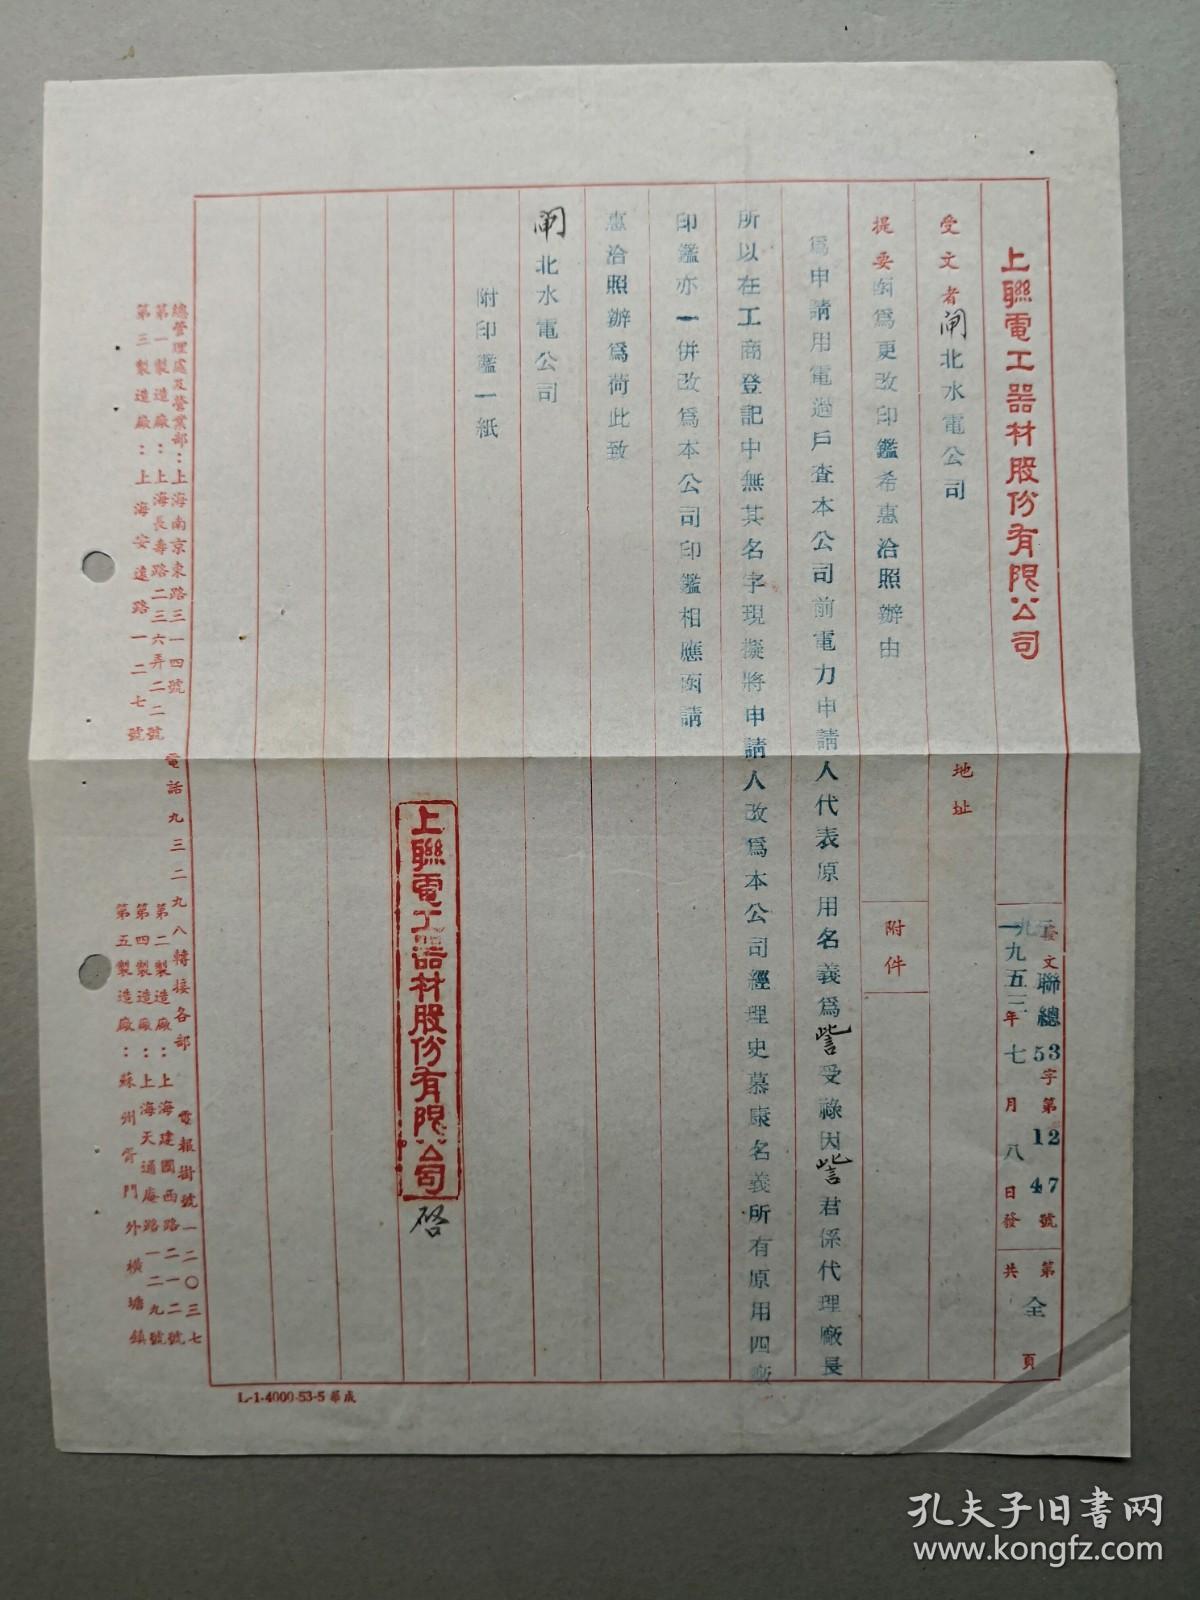 上聯電工器材股份有限公司
發文聯總53字第1247號
一九五三年七月八日發
第全頁
共
受文者閘北水電公司
地址
提要函爲更改印鑑希惠洽照辦由
附件
爲申請用電過戶查本公司前電力申請人代表原用名義爲訾受祿因訾君係代理廠長
所以在工商登記中無其名字現擬將申請人改爲本公司經理史慕康名義所有原用四廠
印鑑亦一併改爲本公司印鑑相應函請
惠洽照辦爲荷此致
閘北水電公司
附印鑑一紙
上聯電工器材股份有限公司
啓
總管理處及營業部：上海南京東路三一四號
第一製造廠：上海長壽路二三六弄二二號
第三製造廠：上海安遠路一二七號
電話九三二九八轉接各部
電報掛號一二〇三七
第二製造廠：上海建國西路二一二號
第四製造廠：上海天通庵路一二九號
第五製造廠：蘇州胥門外橫塘鎮
L-1-4000-53-5 華成
孔夫子旧书网
www.kongfz.com